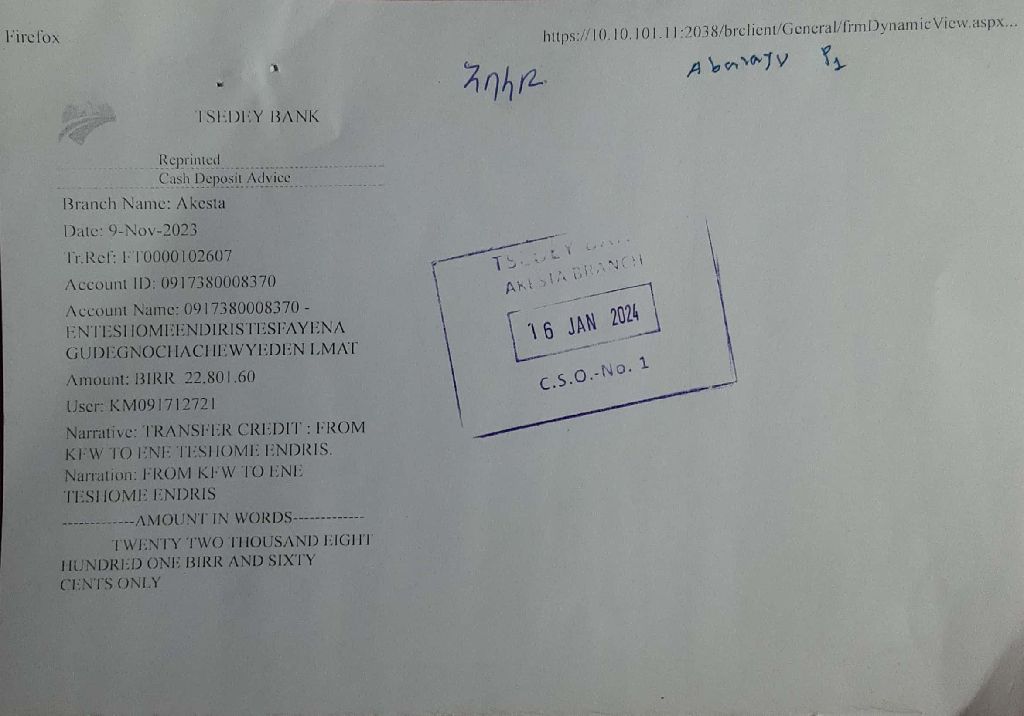 Firefox
https://10.10.101.11:2038/brclient/General/frmDynamicView.aspx...
TSEDEY BANK
Reprinted
Cash Deposit Advice
Branch Name: Akesta
Date: 9-Nov-2023
Tr.Ref: FT0000102607
Account ID: 0917380008370
Account Name: 0917380008370 -
ENTESHOMEENDIRISTESFAYENA
GUDEGNOCHACHEWYEDEN LMAT
Amount: BIRR 22,801.60
User: KM091712721
Narrative: TRANSFER CREDIT : FROM
KFW TO ENE TESHOME ENDRIS.
Narration: FROM KFW TO ENE
TESHOME ENDRIS
-------------AMOUNT IN WORDS-------------
TWENTY TWO THOUSAND EIGHT
HUNDRED ONE BIRR AND SIXTY
CENTS ONLY
TSEDEY BANK
AKESTA BRANCH
16 JAN 2024
C.S.O.-No. 1